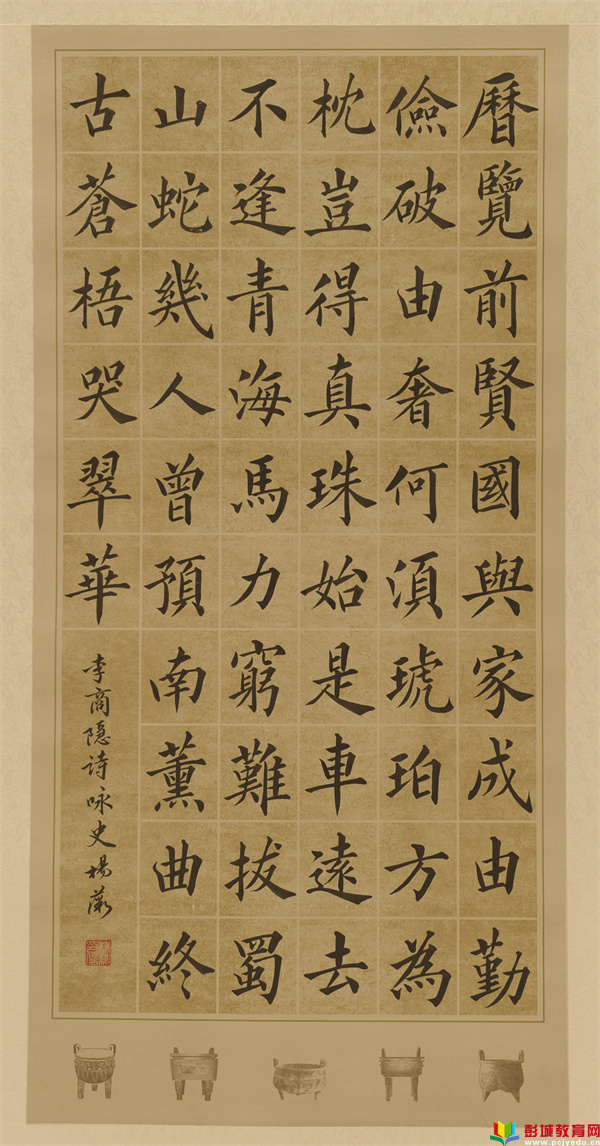 曆覽前賢國與家成由勤
儉破由奢何須琥珀方為
枕豈得真珠始是車遠去
不逢青海馬力窮難拔蜀
山蛇幾人曾預南薰曲終
古蒼梧哭翠華
李商隱诗咏史楊薇
彭城教育网
www.pcjyedu.cn